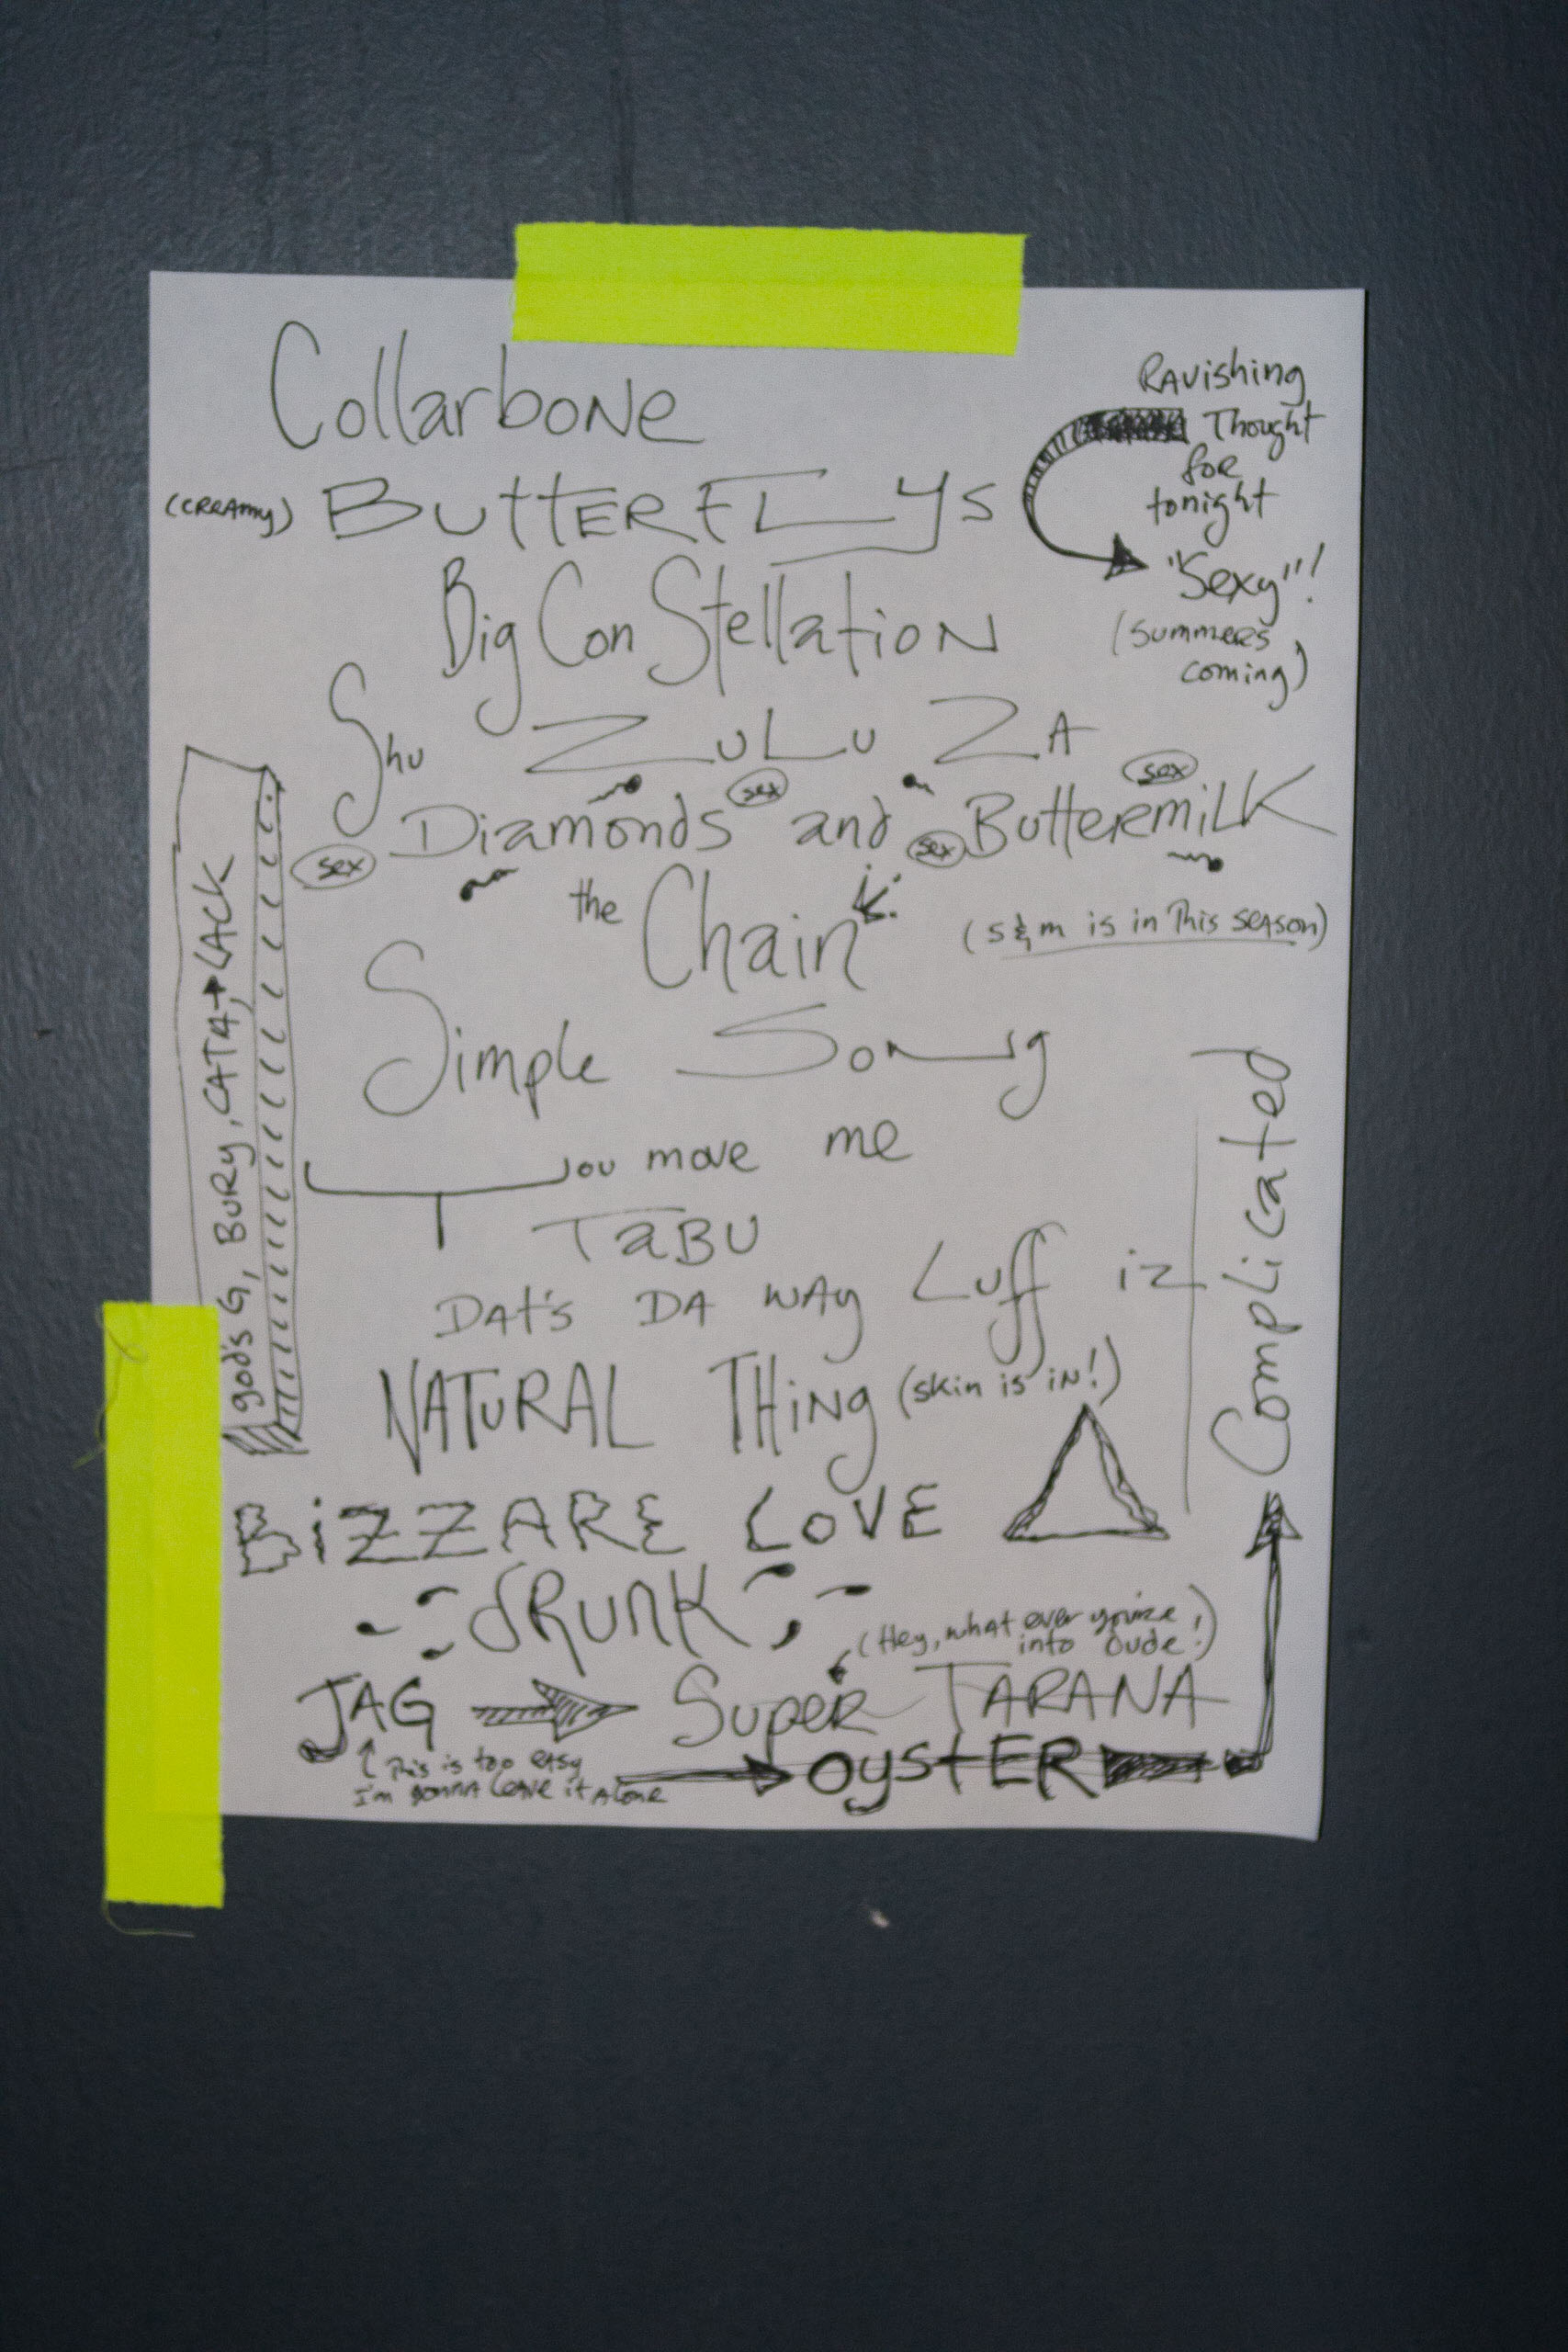 Collarbone
(CREAmy) BUTTERFLYS
Ravishing
Thought
for
tonight
"Sexy"!
(summers
coming)
Big ConStellation
Shu ZuLu ZA
sex sex
Diamonds and ButtermiLK
sex sex
the Chain
(s&m is in This SEASON)
Simple Song
you move me
TaBU
DAt's DA WAy Luff iz
Complicated
god's G, BURy, CATA, LACK
NATURAL THing (skin is iN!)
BiZZARE LOVE
dRUNK
(Hey, whAt ever you're
into Dude!)
JAG SupER TARANA
This is too EASy
I'm gonna leave it Alone
OysTER